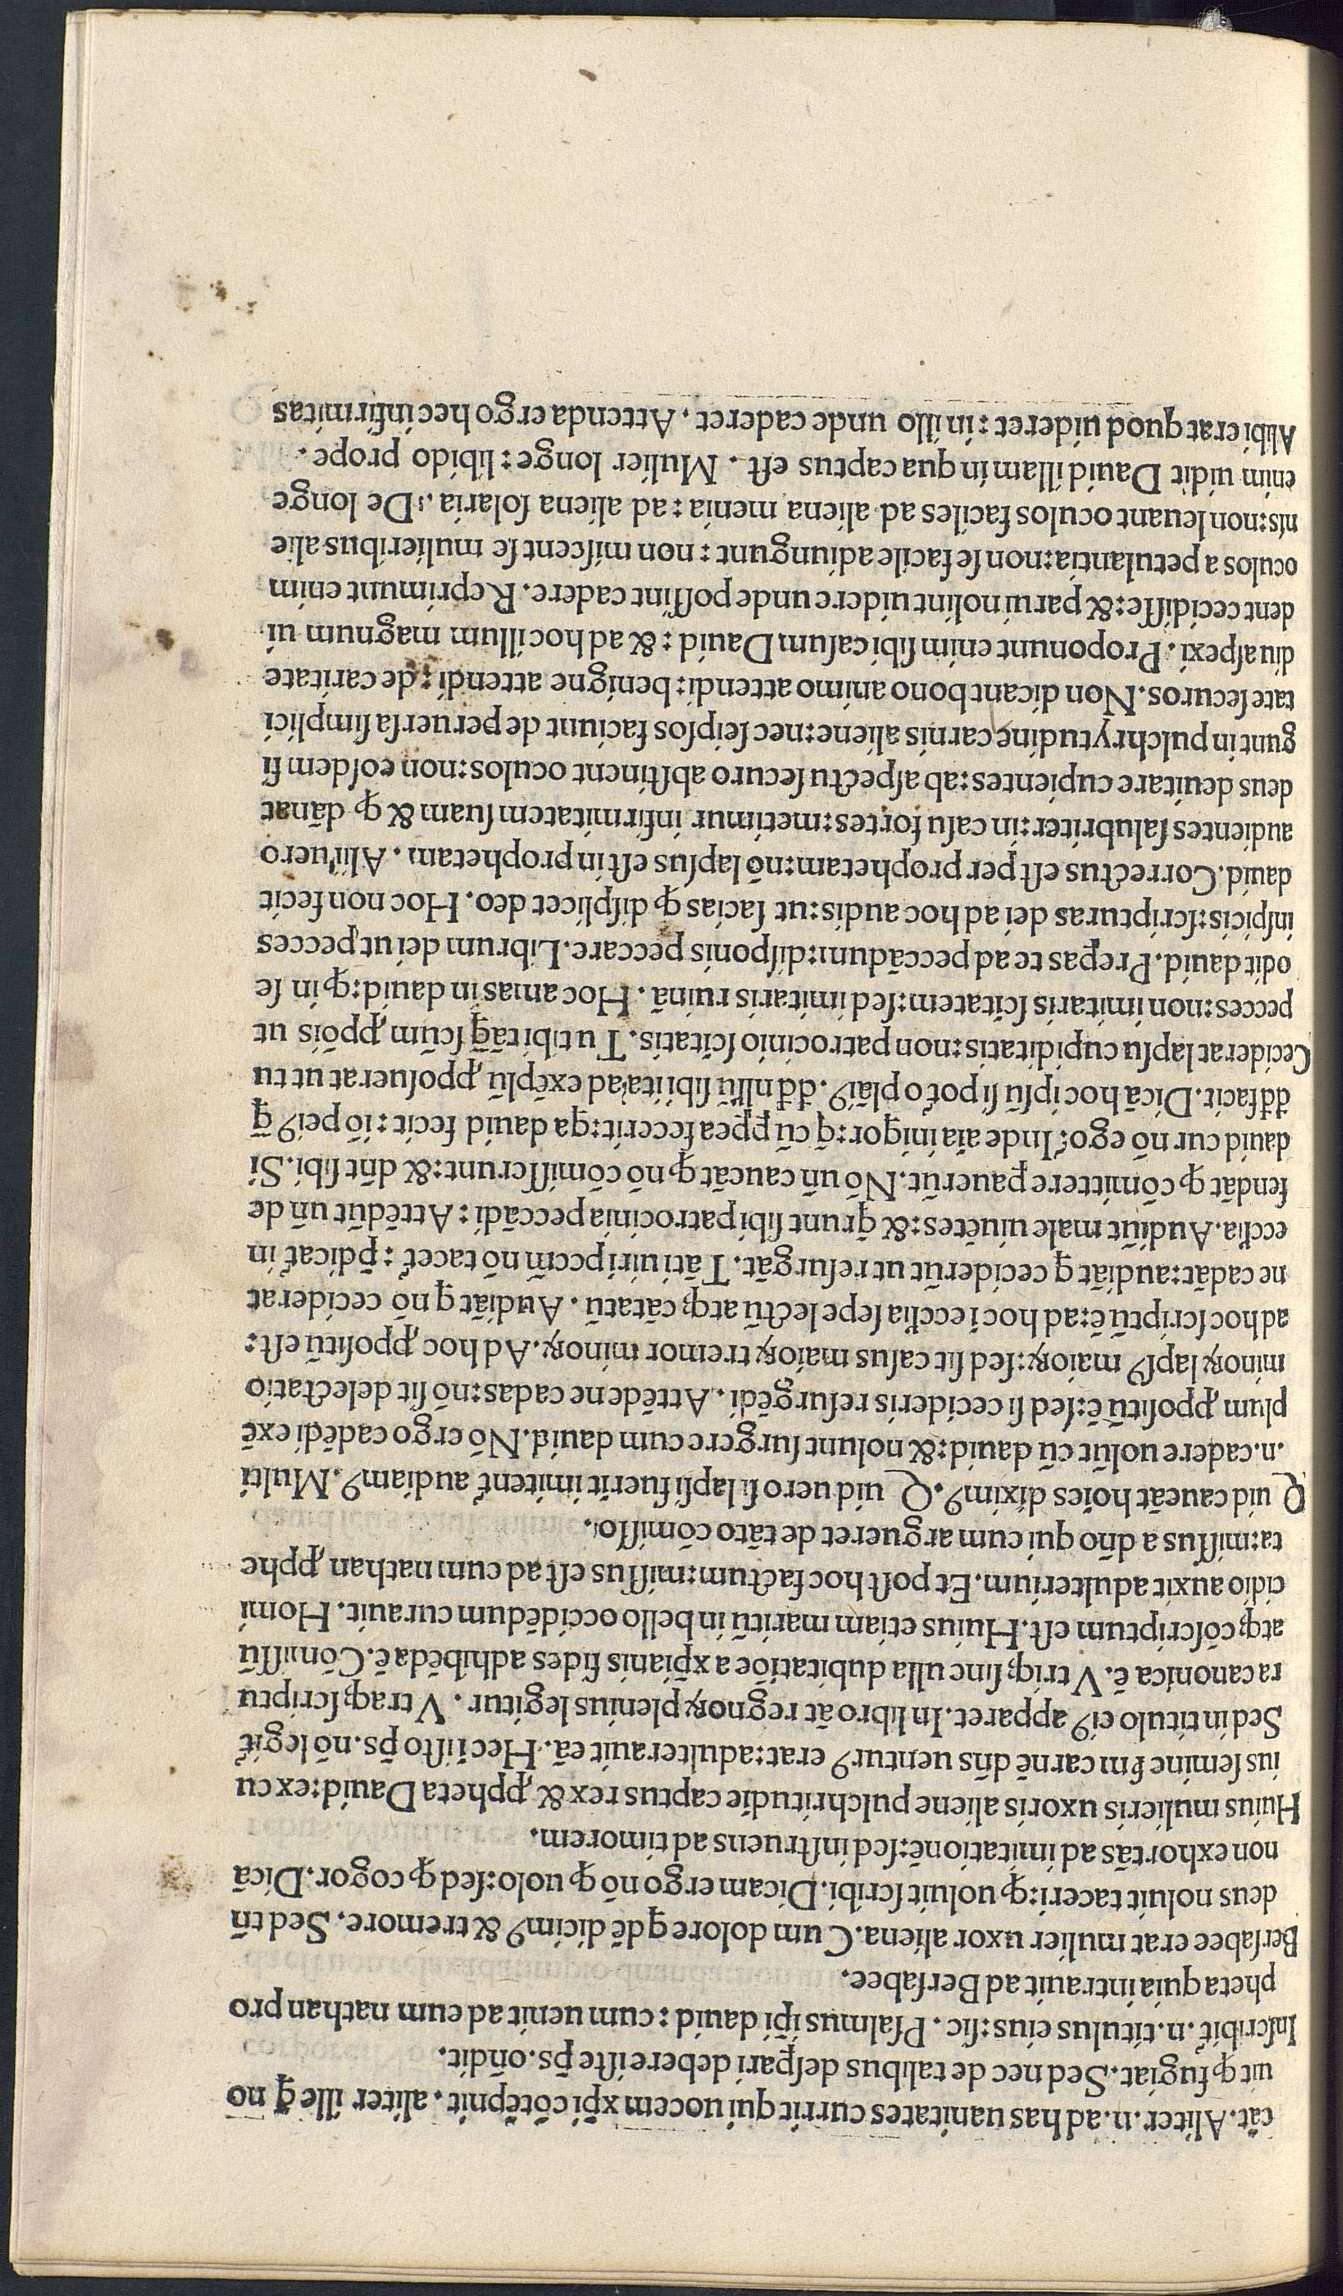 cāt. Aliter .n. ad has uanitates currit qui uocem xp̄i cōtēpnit. aliter ille q̄ no
uit qꝫ fugiat. Sed nec de talibus desꝑari debere iste p̄s. on̄dit.
Inscribit᷑ .n. titulus eius: sic. Psalmus ip̄i dauid: cum uenit ad eum nathan pro
pheta quia intrauit ad Bersabee.
Bersabee erat mulier uxor aliena. Cum dolore qdē dicimꝰ & tremore. Sed tn̄
deus noluit taceri: qꝫ uoluit scribi. Dicam ergo nō qꝫ uolo: sed qꝫ cogor. Dicā
non exhortās ad imitationē: sed instruens ad timorem.
Huius mulieris uxoris aliene pulchritudīe captus rex & ꝓpheta Dauid: ex cu
ius semine scd̄m carnē dn̄s uenturꝰ erat: adulterauit eā. Hec ī isto p̄s. nō legit᷑
Sed in titulo eiꝰ apparet. In libro āt regnoꝝ plenius legitur. Vtraqꝫ scriptu
ra canonica ē. Vtriqꝫ sine ulla dubitatiōe a xp̄ianis fides adhibēda ē. Cōmissū
atqꝫ cōscriptum est. Huius etiam maritū in bello occidēdum curauit. Homi
cidio auxit adulterium. Et post hoc factum: missus est ad eum nathan ꝓphe
ta: missus a dn̄o qui eum argueret de tāto cōmisso.
Quid caueāt hoīes diximꝰ. Quid uero si lapsi fuerit imitent᷑ audiamꝰ. Multi
.n. cadere uolūt cū dauid: & nolunt surgere cum dauid. Nō ergo cadēdi exē
plum ꝓpositū ē: sed si cecideris resurgēdi. Attēde ne cadas: nō sit delectatio
minoꝝ lapsꝰ maioꝝ: sed sit casus maioꝝ tremor minoꝝ. Ad hoc ꝓpositū est:
ad hoc scriptū ē: ad hoc ī eccl̄ia sepe lectū atqꝫ cātatū. Audiāt q nō ceciderāt
ne cadāt: audiāt q ceciderūt ut resurgāt. Tāti uiri pccm̄ nō tacet᷑: p̄dicat᷑ in
eccl̄ia. Audiūt male uiuētes: & q̄runt sibi patrocinia peccādi: Attēdūt un̄ de
fendāt qꝫ cōmittere ꝑauerūt. Nō un̄ caueāt qꝫ nō cōmiserunt: & dn̄t sibi. Si
dauid cur nō ego? Inde aīa iniqor: q̄ cū ꝓpea fecerit: qa dauid fecit: iō peiꝰ q̄
dd̄ facit. Dicā hoc ipsū si poto plāiꝰ. dd̄ nllū sibi ita ad exēplū ꝓposuerat ut tu
Ceciderat lapsu cupiditatis: non patrocinio sc̄itatis. Tu tibi tāq̄ sc̄um ꝓpōis ut
pecces: non imitaris sc̄itatem: sed imitaris ruinā. Hoc amas in dauid: qꝫ in se
odit dauid. Preꝑas te ad peccādum: disponis peccare. Librum dei ut pecces
inspicis: scripturas dei ad hoc audis: ut facias qꝫ displicet deo. Hoc non fecit
dauid. Correctus est per prophetam: nō lapsus est in prophetam. Alii uero
audientes salubriter: in casu fortes: metimur infirmitatem suam & qꝫ dānat
deus deuitare cupientes: ab aspectu securo abstinent oculos: non eosdem fi
gunt in pulchrytudine carnis aliene: nec seipsos faciunt de peruersa simplici
tate securos. Non dicant bono animo attendi: benigne attendi: de caritate
diu aspexi. Proponunt enim sibi casum Dauid: & ad hoc illum magnum ui
dent cecidisse: & parui nolint uidere unde possint cadere. Reprimunt enim
oculos a petulantia: non se facile adiungunt: non miscent se mulieribus alie
nis: non leuant oculos faciles ad aliena menia: ad aliena solaria: De longe
enim uidit Dauid illam in qua captus est. Mulier longe: libido prope.
Alibi erat quod uideret: in illo unde caderet. Attenda ergo hec infirmitas